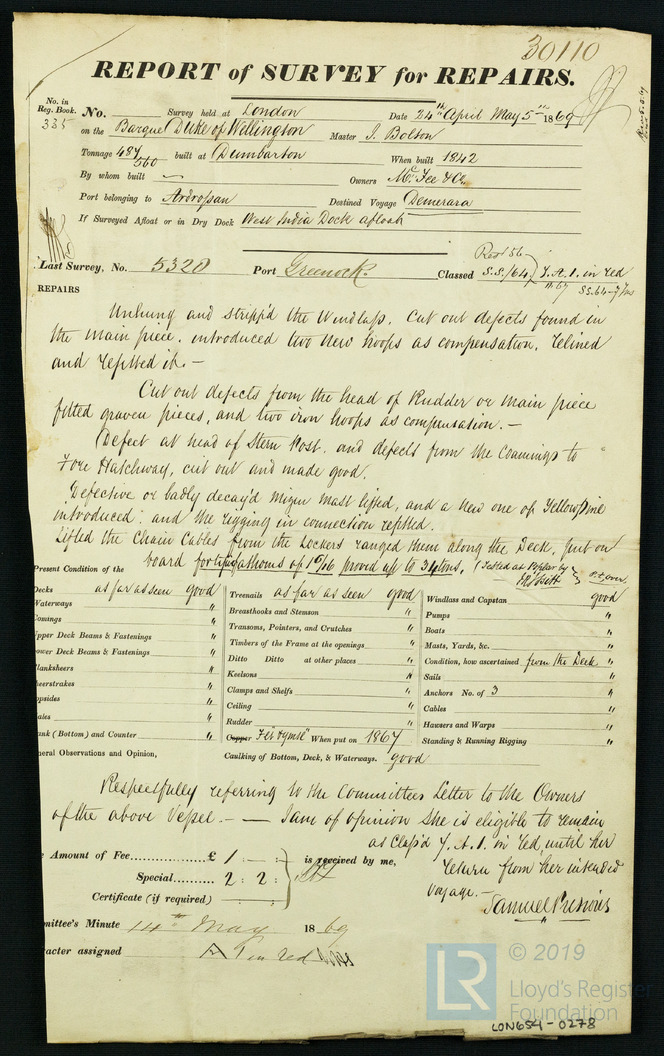 30110
REPORT of SURVEY for REPAIRS.
No. in Reg. Book.
335
No. Survey held at London Date 24th April May 5th 1869
on the Barque Duke of Wellington Master J. Bolton
Tonnage 487/560 built at Dumbarton When built 1842
By whom built — Owners McFee & Co.
Port belonging to Ardrossan Destined Voyage Demerara
If Surveyed Afloat or in Dry Dock West India Dock afloat
Last Survey, No. 5320 Port Greenock. Classed S.S./64 A.1. in red
REPAIRS
Unhung and stripp'd the Windlass. Cut out defects found in
the main piece. introduced two new hoops as compensation. Relined
and refitted it. —
Cut out defects from the head of Rudder or main piece
fitted graven pieces, and two iron hoops as compensation. —
Defect at head of Stern Post. and defects from the Coamings to
Fore Hatchway, cut out and made good.
Defective or badly decay'd mizen mast lifted, and a new one of Yellow Pine
introduced: and the rigging in connection refitted.
Lifted the Chain Cables from the Lockers ranged them along the Deck. Put on
board forty fathoms of 1 6/16 proved up to 34 tons. (Tested at Poplar by
P.t. over.
Present Condition of the
Decks as far as seen good Treenails as far as seen good Windlass and Capstan good
Waterways " Breasthooks and Stemson " Pumps "
Comings " Transoms, Pointers, and Crutches " Boats "
Upper Deck Beams & Fastenings " Timbers of the Frame at the openings " Masts, Yards, &c. "
Lower Deck Beams & Fastenings " Ditto Ditto at other places " Condition, how ascertained from the Deck "
Planksheers " Keelsons " Sails "
Sheerstrakes " Clamps and Shelfs " Anchors No. of 3 "
Topsides " Ceiling " Cables "
Wales " Rudder " Hawsers and Warps "
Plank (Bottom) and Counter " Copper When put on 1867 Standing & Running Rigging "
General Observations and Opinion, Caulking of Bottom, Deck, & Waterways. good
Respectfully referring to the Committees Letter to the Owners
of the above Vessel. — — I am of opinion She is eligible to remain
as Class'd A.1. in red, until her
return from her intended
voyage. —
Amount of Fee............ £ 1 : — : — is received by me,
Special......... 2 : 2 :
Certificate (if required)
Samuel
Committee's Minute 14th May 1869
Character assigned A 1 in red
© 2019
LR
Lloyd's Register
Foundation
LON654-0278